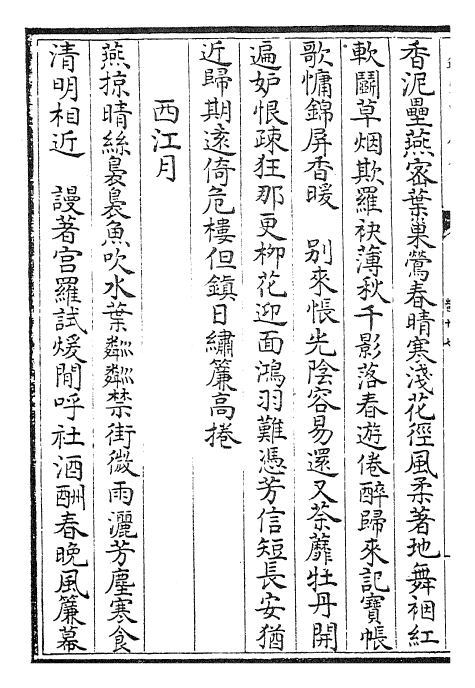 香泥壘燕密葉巢鶯春晴寒淺花徑風柔著地舞裀紅
軟鬬草烟欺羅袂薄秋千影落春遊倦醉歸來記寶帳
歌慵錦屏香暖　别來悵光陰容易還又荼蘼牡丹開
遍妒恨疎狂那更栁花迎面鴻羽難憑芳信短長安猶
近歸期逺倚危樓但鎮日繡簾高捲
西江月
燕掠晴絲裊裊魚吹水葉粼粼禁街微雨灑芳塵寒食
清明相近　謾著宫羅試煖閒呼社酒酬春晚風簾幕